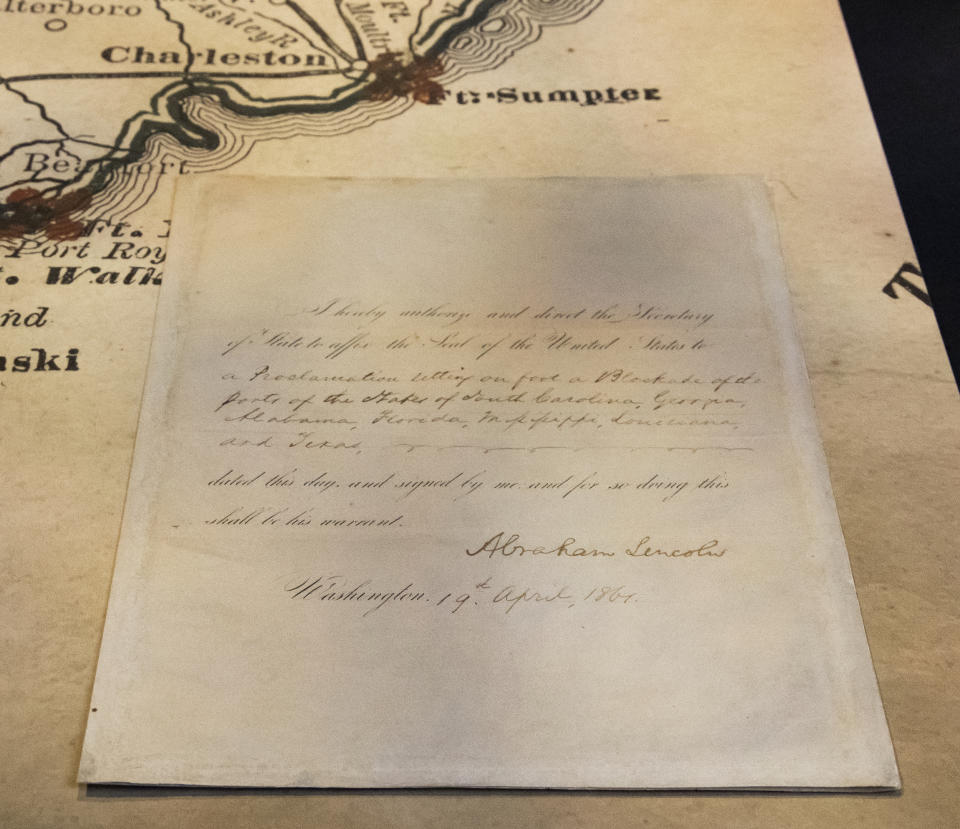 lterboro
Ashley R
Ft.
Moultr
Charleston
Ft. Sumpter
Beaufort
Ft.
Port Roy
t. Walk
nd
aski
T
I hereby authorize and direct the Secretary
of State to affix the Seal of the United States to
a Proclamation setting on foot a Blockade of the
ports of the States of South Carolina, Georgia,
Alabama, Florida, Mississippi, Louisiana,
and Texas,
dated this day, and signed by me and for so doing this
shall be his warrant.
Abraham Lincoln
Washington, 19th April, 1861.